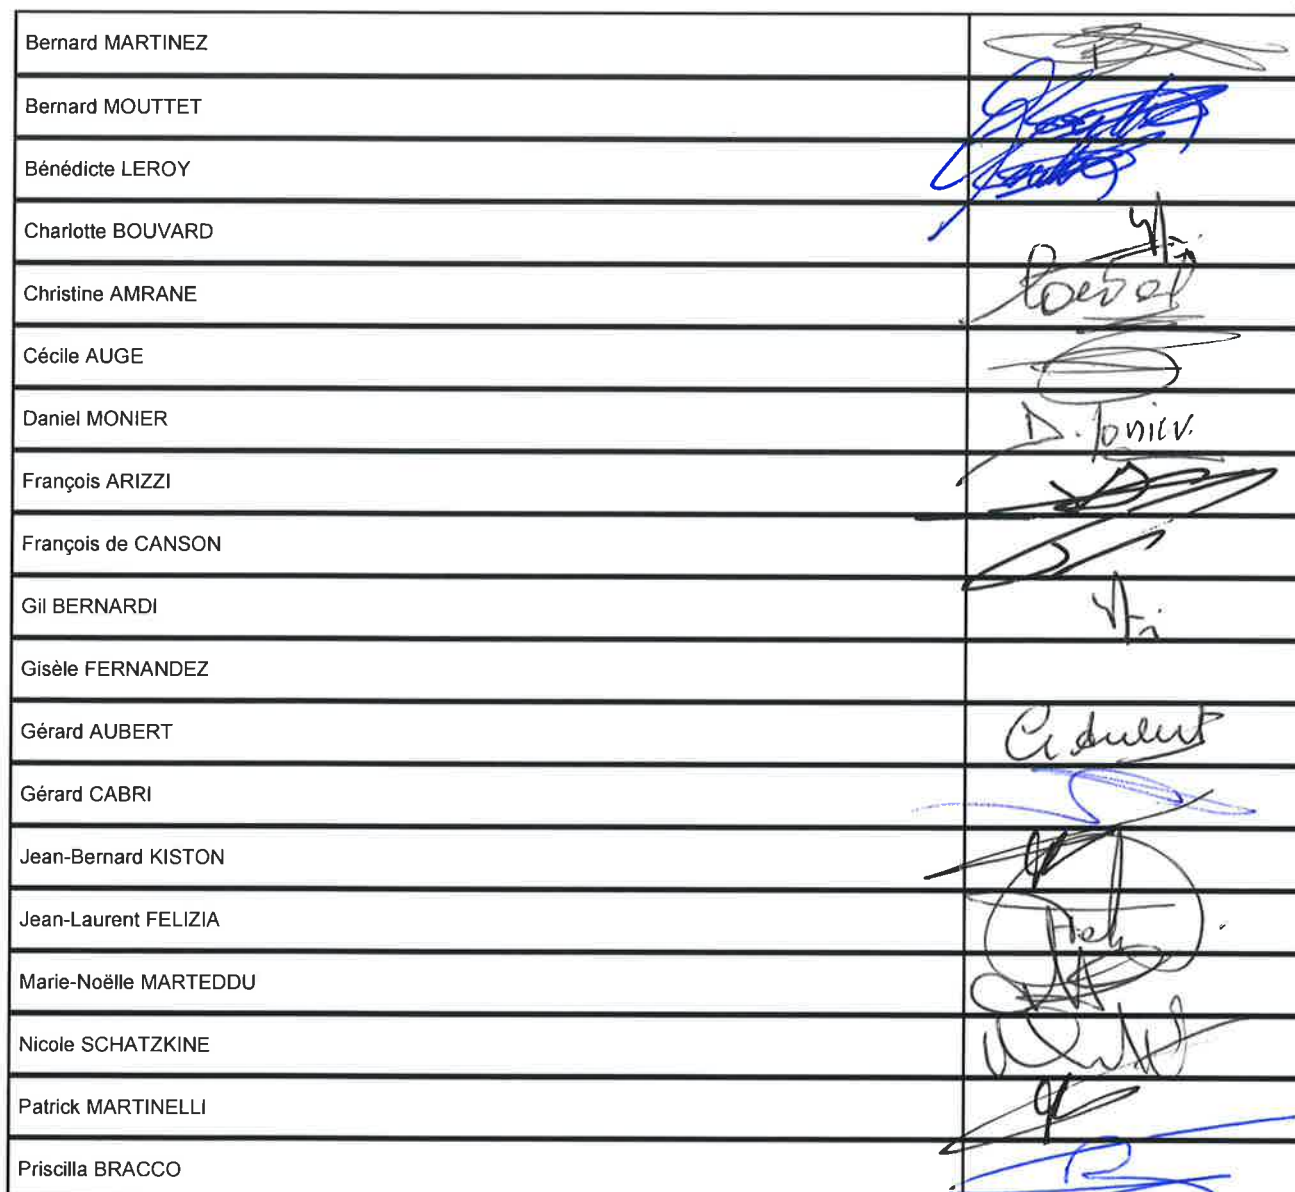 Bernard MARTINEZ
Bernard MOUTTET
Bénédicte LEROY
Charlotte BOUVARD
Christine AMRANE
Cécile AUGE
Daniel MONIER
D. Monier
François ARIZZI
François de CANSON
Gil BERNARDI
Gisèle FERNANDEZ
Gérard AUBERT
G Aubert
Gérard CABRI
Jean-Bernard KISTON
Jean-Laurent FELIZIA
Marie-Noëlle MARTEDDU
Nicole SCHATZKINE
Patrick MARTINELLI
Priscilla BRACCO